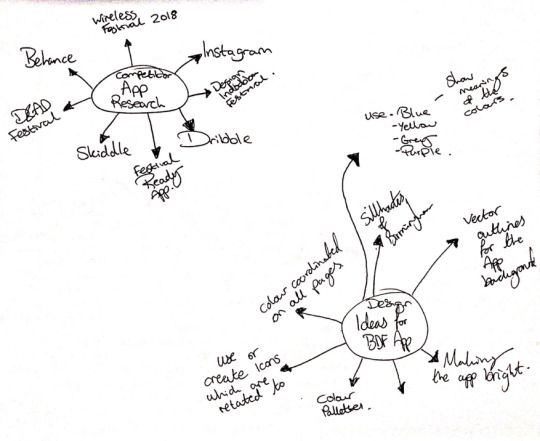 Wireless
Festival 2018
Behance
Instagram
Competitor
App
Research
Design
Indaba
Festival.
D&AD
Festival
Skiddle
Festival
Ready
App.
Dribble
Show meanings
of the
colours.
Use - Blue
- Yellow
- Grey
- Purple.
Sillhouttes
of
Birmingham
Vector
outlines
for the
App
background
Colour coordinated
on all pages
Design
Ideas for
BDF App
use or
create Icons
which are
related to
Colour
Palletses.
Making
the app bright.